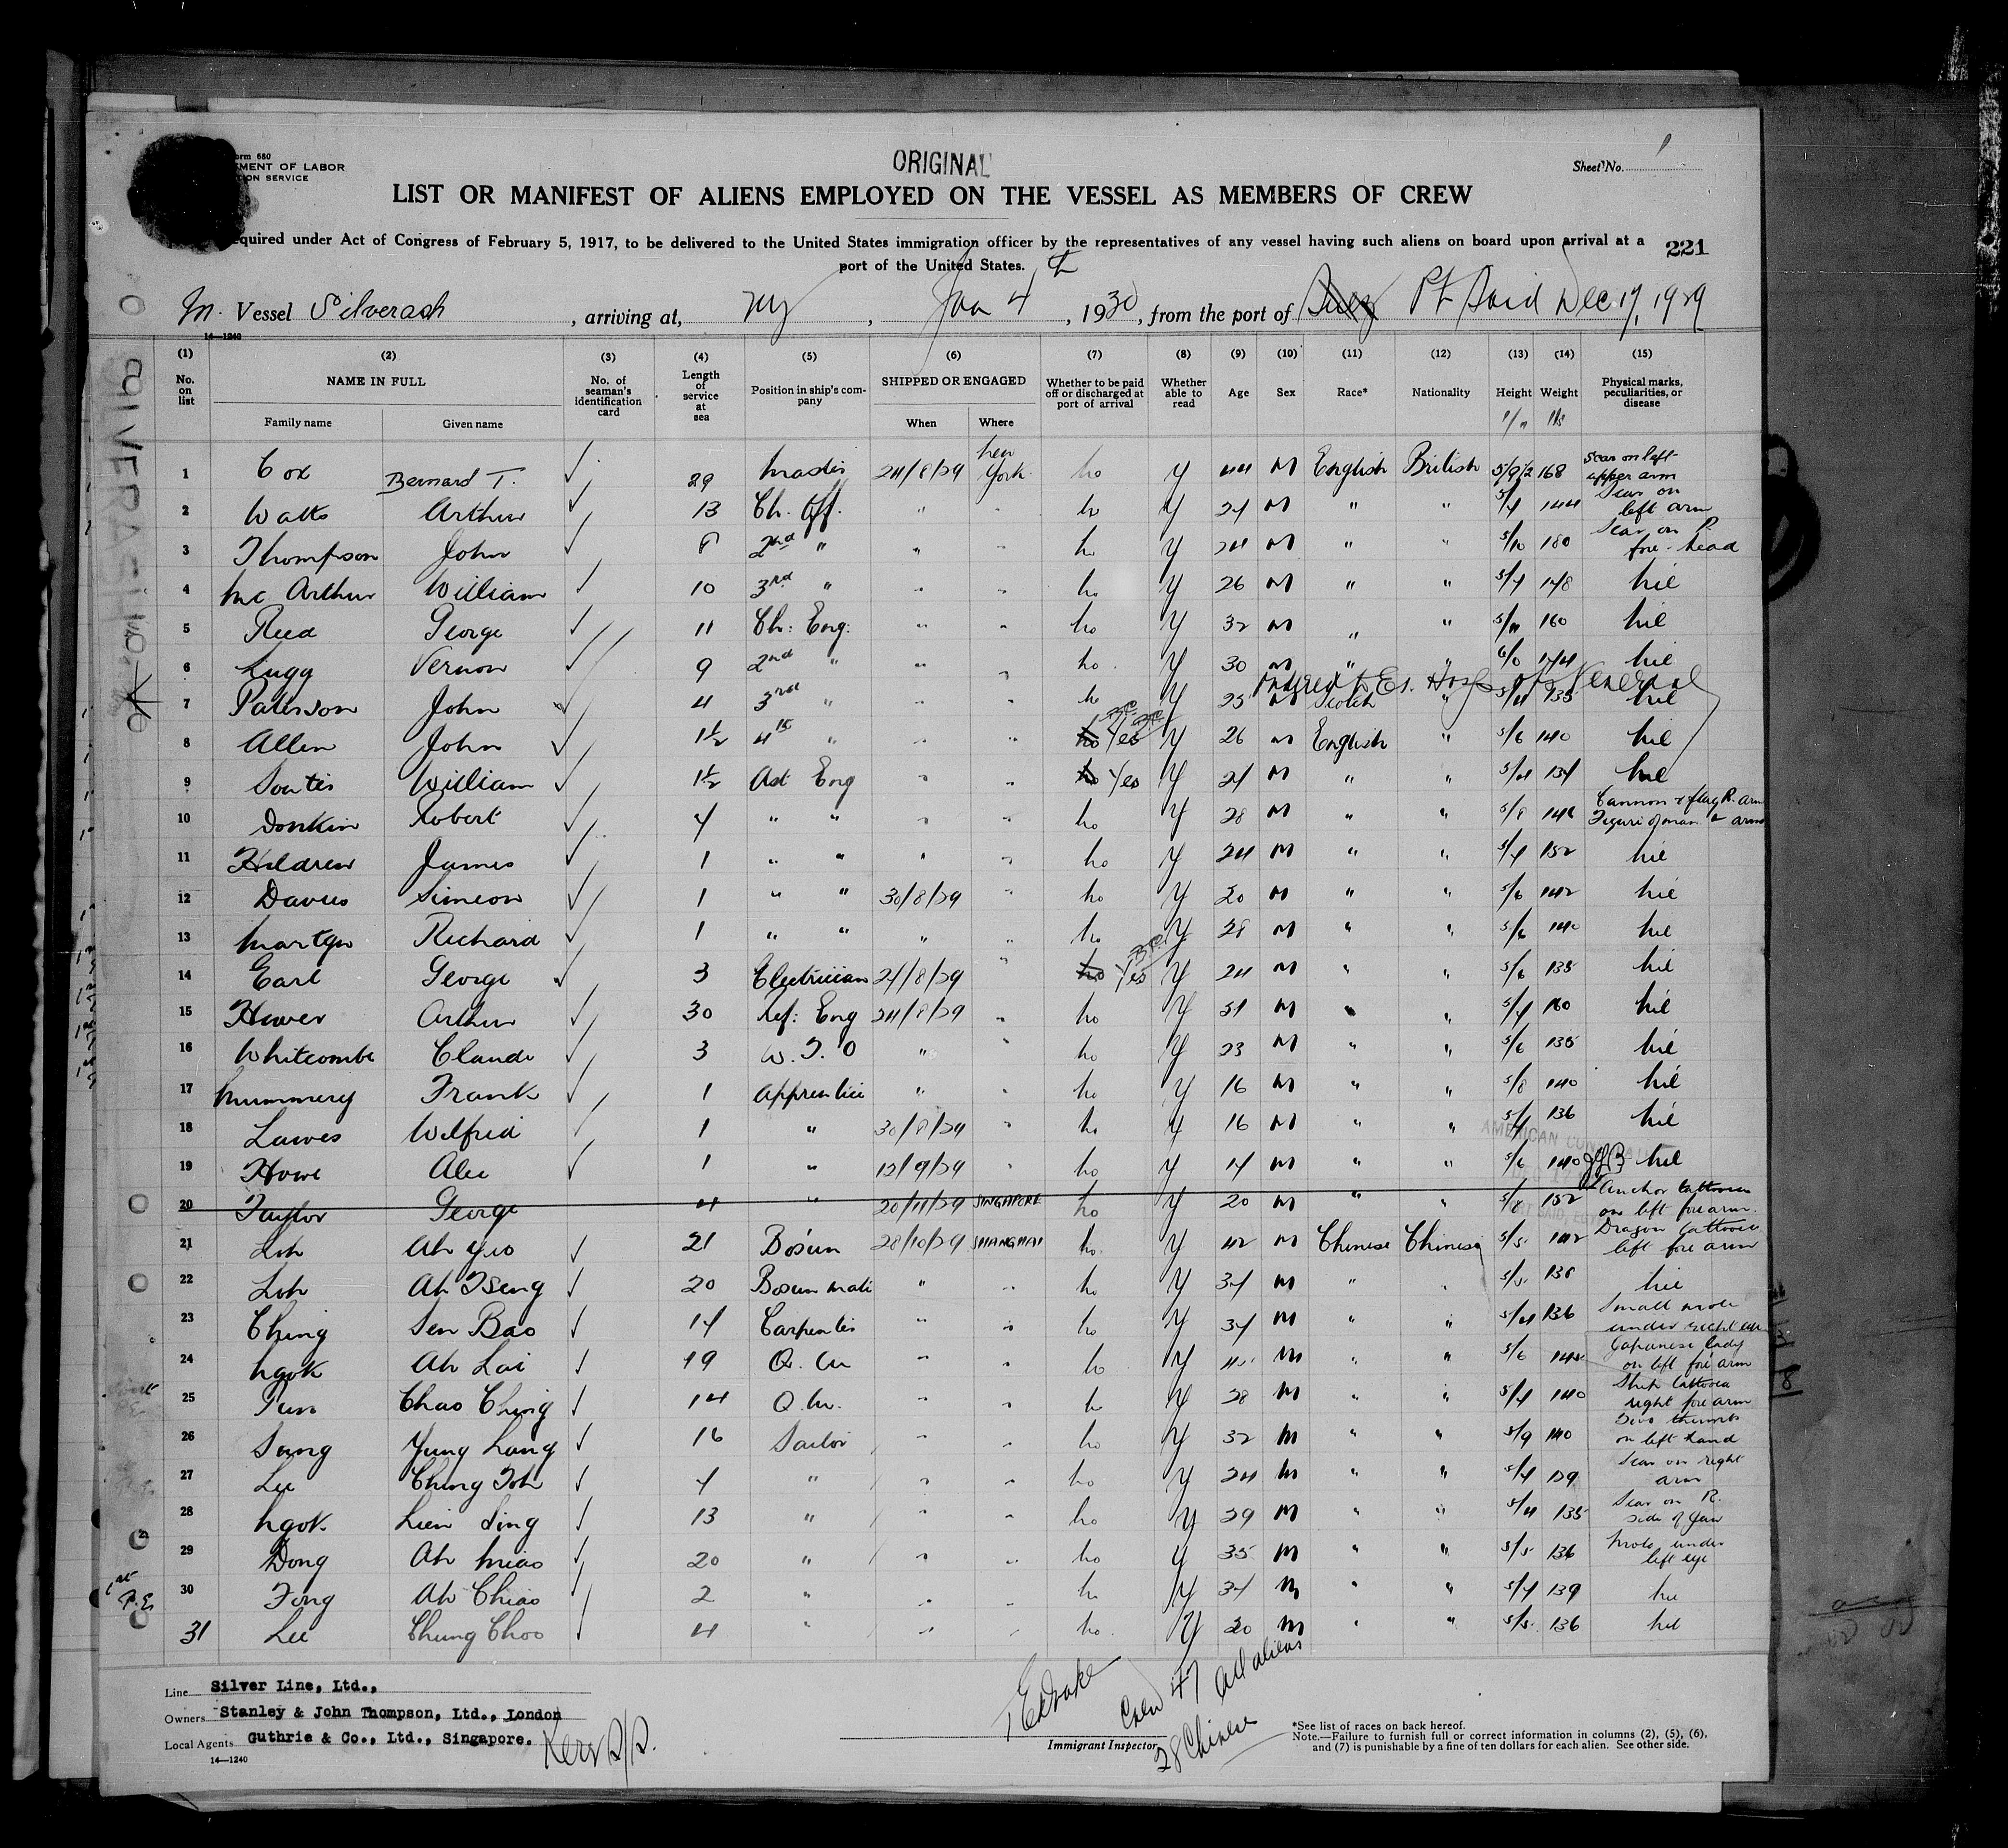 ORIGINAL
Form 680
DEPARTMENT OF LABOR
Sheet No. 1
LIST OR MANIFEST OF ALIENS EMPLOYED ON THE VESSEL AS MEMBERS OF CREW
equired under Act of Congress of February 5, 1917, to be delivered to the United States immigration officer by the representatives of any vessel having such aliens on board upon arrival at a
port of the United States.
221
M. Vessel Silverash, arriving at, NY, Jan 4th, 1930, from the port of Suez Pt Said Dec 17, 1929
14—1240
(1) (2) (3) (4) (5) (6) (7) (8) (9) (10) (11) (12) (13) (14) (15)
No. on list NAME IN FULL No. of seaman's identification card Length of service at sea Position in ship's company SHIPPED OR ENGAGED Whether to be paid off or discharged at port of arrival Whether able to read Age Sex Race* Nationality Height Weight Physical marks, peculiarities, or disease
Family name Given name When Where
1 Cox Bernard T. ✓ 29 Master 24/8/29 New York no y 44 M English British 5/9½ 168 Scar on left upper arm
2 Watts Arthur ✓ 13 Ch. Off. " " no y 27 M " " 5/7 144 Scar on left arm
3 Thompson John ✓ 8 2nd " " " no y 24 M " " 5/10 180 Scar on R. fore-head
4 McArthur William ✓ 10 3rd " " " no y 26 M " " 5/7 148 nil
5 Reed George ✓ 11 Ch. Eng. " " no y 32 M " " 5/11 160 nil
6 Lugg Vernon ✓ 9 2nd " " " no y 30 M " " 6/0 174 nil
7 Paterson John ✓ 4 3rd " " " no y 25 M Scotch " 5/4 135 nil
8 Allen John ✓ 1½ 4th " " " no Yes y 26 M English " 5/6 140 nil
9 William ✓ 1½ Ast Eng " " no Yes y 21 M " " 5/4 nil
10 Donkin Robert ✓ 7 " " " " no y 28 M " " 5/8 146 Cannon & flag R. arm Figure of man L arm
11 Hildrew James ✓ 1 " " " " no y 24 M " " 5/7 152 nil
12 Davies Simeon ✓ 1 " " 30/8/29 " no y 20 M " " 5/6 142 nil
13 Martyn Richard ✓ 1 " " " " no y 28 M " " 5/6 140 nil
14 Earl George ✓ 3 Electrician 27/8/29 " no Yes y 24 M " " 5/6 135 nil
15 Arthur ✓ 30 Ref. Eng 24/8/29 " no y 51 M " " 5/7 160 nil
16 Whitcombe Claude ✓ 3 W.T.O " " no y 23 M " " 5/6 135 nil
17 Mummery Frank ✓ 1 Apprentice " " no y 16 M " " 5/8 140 nil
18 Lawes Wilfred ✓ 1 " 30/8/29 " no y 16 M " " 5/7 136 nil
19 Howe Alec ✓ 1 " 12/9/29 " no y 17 M " " 5/6 140 nil
20 Taylor George 4 " 20/11/29 SINGAPORE no y 20 M " " 5/8 152 Anchor tattooed on left forearm.
21 Loh Ah Yuo ✓ 21 Bosun 28/10/29 SHANGHAI no y 42 M Chinese Chinese 5/5 142 Dragon tattooed left fore arm
22 Loh Ah Tseng ✓ 20 Bosun mate " " no y 37 M " " 5/5 nil
23 Ching Sen Bao ✓ 17 Carpenter " " no y 37 M " " 5/4 136 Small mole under right eye
24 Ngok Ah Lai ✓ 19 Q. M " " no y M " " 5/6 145 Japanese lady on left fore arm
25 Chao Ching ✓ 14 Q. M. " " no y 28 M " " 5/7 140 Ship tattooed right fore arm
26 Yung Lung ✓ 16 Sailor " " no y 32 M " " 5/9 140 Two thumbs on left hand
27 Lee Ching Toh ✓ 7 " " " no y 24 M " " 5/7 129 Scar on right arm
28 Ngok Lien Ling ✓ 13 " " " no y 29 M " " 5/4 135 Scar on R. side of jaw
29 Dong Ah Miao ✓ 20 " " " no y 35 M " " 5/5 136 Mole under left eye
30 Fong Ah Chiao ✓ 2 " " " no y 37 M " " 5/7 139 nil
31 Lee Chung Choo ✓ 4 " " " no y 20 M " " 5/5 136 nil
Line Silver Line, Ltd.,
Owners Stanley & John Thompson, Ltd., London
Local Agents Guthrie & Co., Ltd., Singapore.
Kerr S/S.
14—1240
Immigrant Inspector.
Crew 47 all aliens
28 Chinese
*See list of races on back hereof.
Note.—Failure to furnish full or correct information in columns (2), (5), (6),
and (7) is punishable by a fine of ten dollars for each alien. See other side.